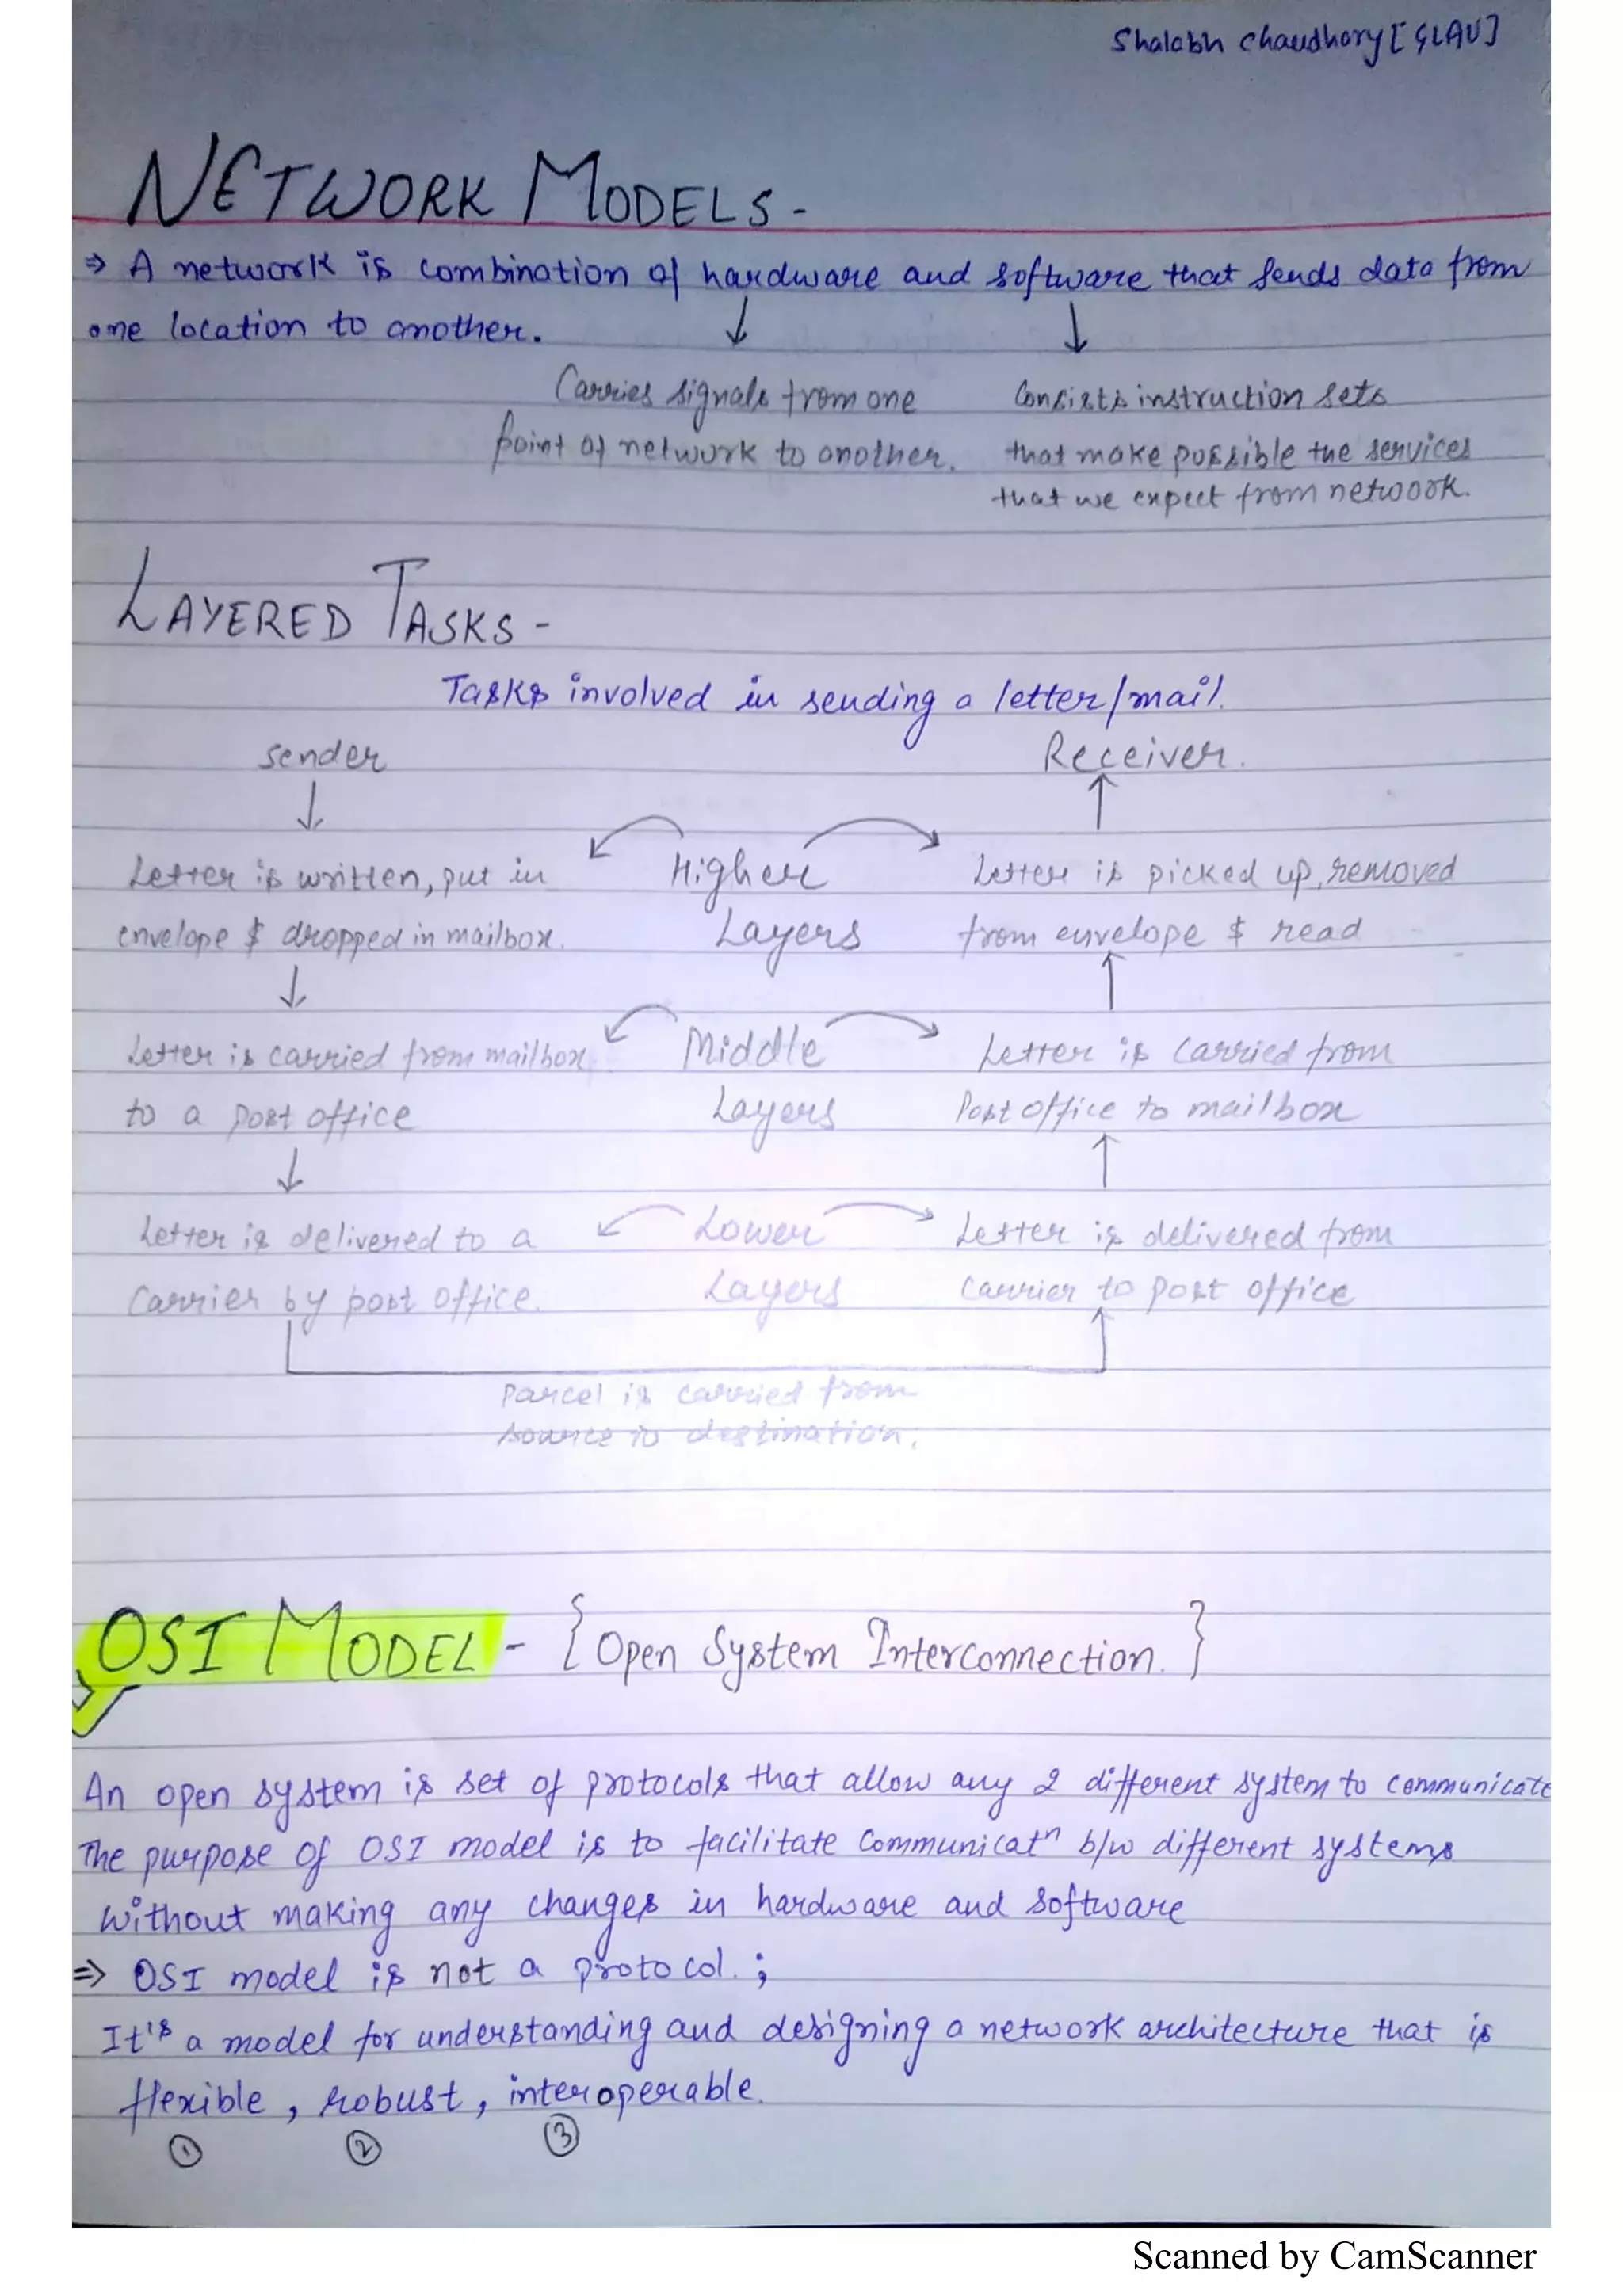 Shalabh Chaudhary [GLAU]
NETWORK MODELS -
⇒ A network is combination of hardware and software that sends data from
one location to another. ↓ ↓
Carries signals from one Consists instruction sets
point of network to another. that make possible the services
that we expect from network.
LAYERED TASKS -
Tasks involved in sending a letter/mail.
Sender Receiver.
↓ ↑
Letter is written, put in Higher Letter is picked up, removed
envelope & dropped in mailbox. Layers from envelope & read
↓ ↑
Letter is carried from mailbox Middle Letter is carried from
to a post office Layers Post office to mailbox
↓ ↑
Letter is delivered to a Lower Letter is delivered from
Carrier by post office. Layers Carrier to post office
Parcel is carried from
source to destination.
OSI MODEL - { Open System Interconnection. }
An open system is set of protocols that allow any 2 different system to communicate
The purpose of OSI model is to facilitate Communicatⁿ b/w different systems
without making any changes in hardware and software
⇒ OSI model is not a protocol. ;
It's a model for understanding and designing a network architecture that is
flexible, robust, interoperable.
① ② ③
Scanned by CamScanner